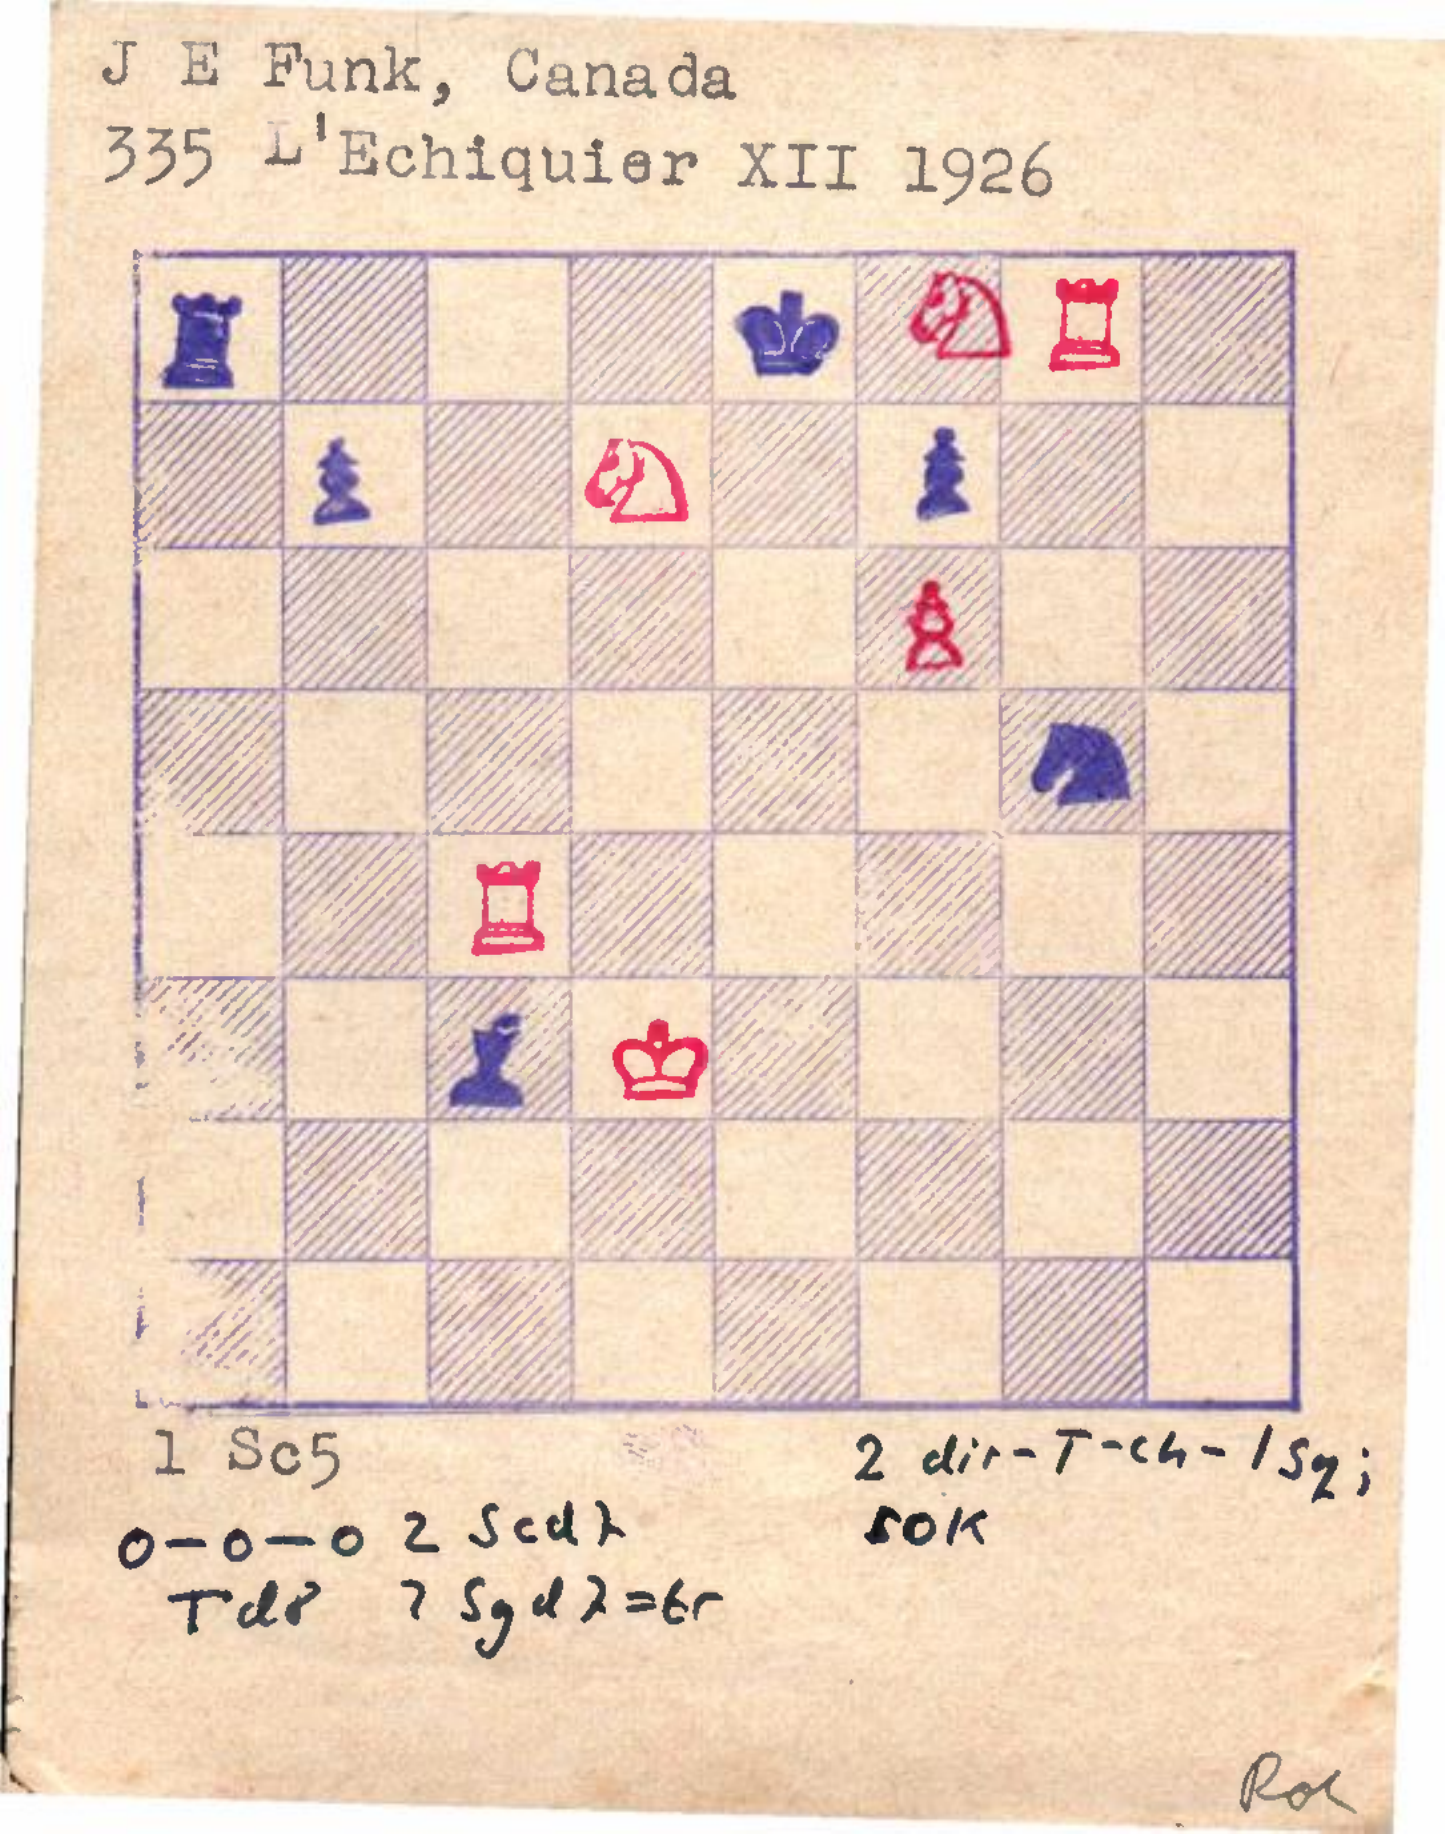 J E Funk, Canada
335 L'Echiquier XII 1926
1 Sc5
2 dir-T-ch-1Sq;
SOK
0-0-0 2 Scd7
Td8 2 Sgd7=tr